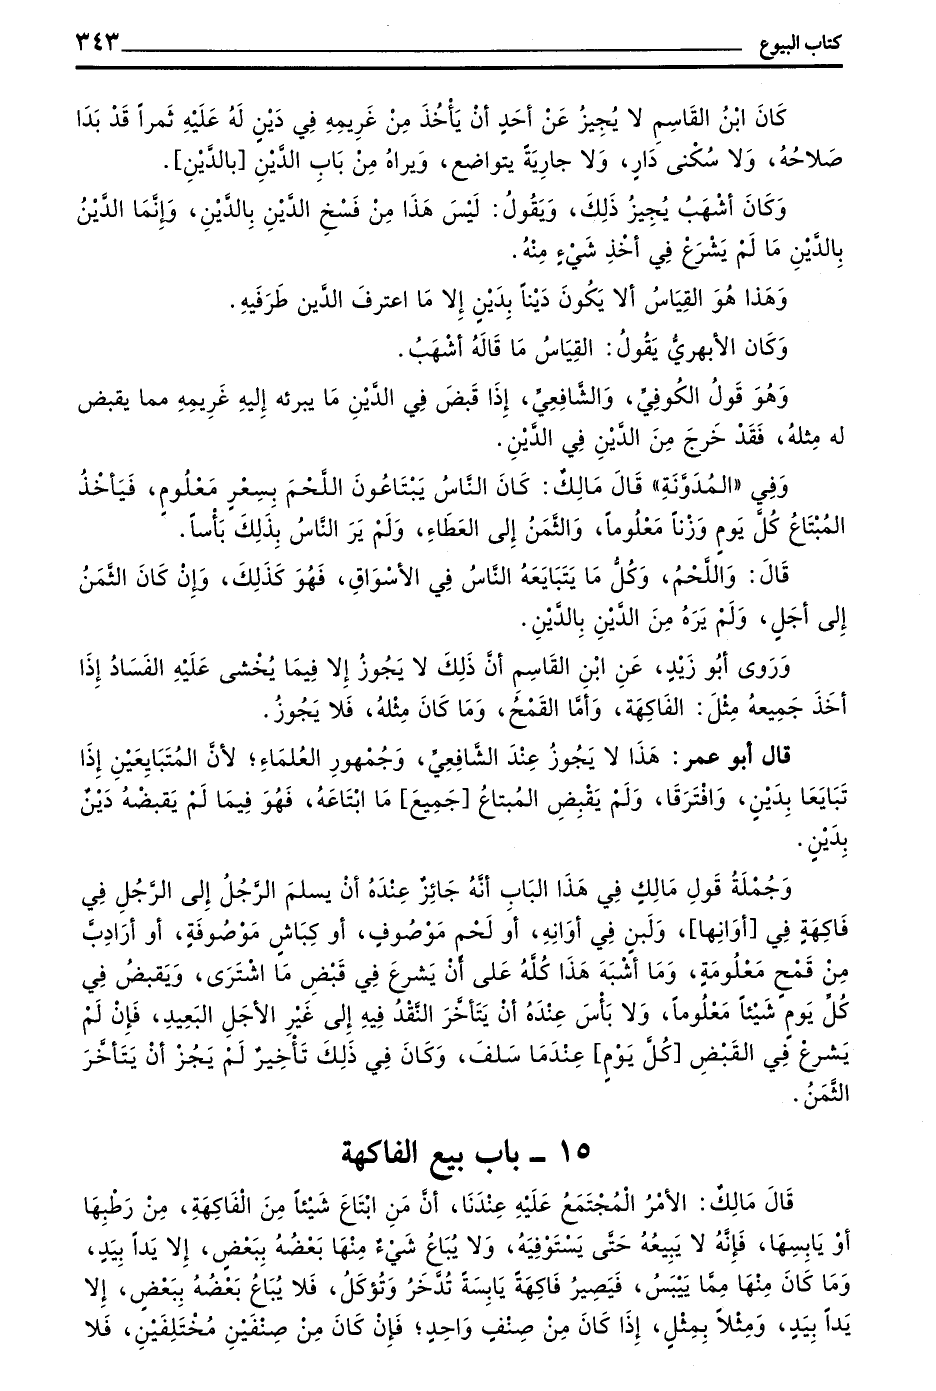 كتاب البيوع ٣٤٣
كَانَ ابْنُ القَاسِمِ لا يُجِيزُ عَنْ أحَدٍ أنْ يَأْخُذَ مِنْ غَرِيمِهِ فِي دَيْنٍ لَهُ عَلَيْهِ ثَمراً قَدْ بَدَا
صَلاحُهُ، وَلا سُكْنى دَارٍ، وَلا جارِيَةً يتواضع، وَيراهُ مِنْ بَابِ الدَّيْنِ [بالدَّيْنِ].
وَكَانَ أشْهَبُ يُجِيزُ ذَلِكَ، وَيَقُولُ: لَيْسَ هَذَا مِنْ فَسْخِ الدَّيْنِ بِالدَّيْنِ، وَإِنَّمَا الدَّيْنُ
بِالدَّيْنِ مَا لَمْ يَشْرَعْ فِي أخْذِ شَيْءٍ مِنْهُ.
وَهَذا هُوَ القِيَاسُ ألا يَكُونَ دَيْناً بِدَيْنٍ إلا مَا اعترفَ الدَّين طَرَفَيهِ.
وَكَان الأبهريُّ يَقُولُ: القِيَاسُ مَا قَالَهُ أشْهَبُ.
وَهُوَ قَولُ الكُوفِيِّ، وَالشَّافِعِيِّ، إِذَا قَبضَ فِي الدَّيْنِ مَا يبرئه إِليهِ غَرِيمِهِ مما يقبض
له مِثلهُ، فَقَدْ خَرجَ مِنَ الدَّيْنِ فِي الدَّيْنِ.
وَفِي «المُدَوَّنَةِ» قَالَ مَالِكٌ: كَانَ النَّاسُ يَبْتَاعُونَ اللَّحْمَ بِسِعْرٍ مَعْلُومٍ، فَيَأخْذُ
المُبْتَاعُ كُلَّ يَومٍ وَزْناً مَعْلُوماً، وَالثَّمنُ إلى العَطَاءِ، وَلَمْ يَرَ النَّاسُ بِذَلِكَ بَأْساً.
قَالَ: وَاللَّحْمُ، وَكُلُّ مَا يَتَبَايَعَهُ النَّاسُ فِي الأسْوَاقِ، فَهُوَ كَذَلِكَ، وَإِنْ كَانَ الثَّمَنُ
إِلى أجَلٍ، وَلَمْ يَرَهُ مِنَ الدَّيْنِ بِالدَّيْنِ.
وَرَوى أبُو زَيْدٍ، عَنِ ابْنِ القَاسِمِ أنَّ ذَلِكَ لا يَجُوزُ إلا فِيمَا يُخْشى عَلَيْهِ الفَسَادُ إِذَا
أخَذَ جَمِيعهُ مِثْلَ: الفَاكِهَة، وَأمَّا القَمْحُ، وَمَا كَانَ مِثْلهُ، فَلا يَجُوزُ.
قال أبو عمر: هَذَا لا يَجُوزُ عِنْدَ الشَّافِعِيِّ، وَجُمْهورِ العُلمَاءِ؛ لأنَّ المُتَبَايِعَيْنِ إِذَا
تَبَايَعَا بِدَيْنٍ، وَافْتَرَقَا، وَلَمْ يَقْبِضِ المُبتاعُ [جَمِيعَ] مَا ابْتَاعَهُ، فَهُوَ فِيمَا لَمْ يَقبضْهُ دَيْنٌ
بِدَيْنٍ.
وَجُمْلَةُ قَولِ مَالِكٍ فِي هَذَا البَابِ أنَّهُ جَائِزٌ عِنْدَهُ أنْ يسلمَ الرَّجُلُ إِلى الرَّجُلِ فِي
فَاكِهَةٍ فِي [أوَانِها]، وَلَبنٍ فِي أوَانِهِ، أو لَحْمٍ مَوْصُوفٍ، أو كِبَاشٍ مَوْصُوفَةٍ، أو أرَادِبَّ
مِنْ قَمْحٍ مَعْلُومَةٍ، وَمَا أشْبَهَ هَذَا كُلَّهُ عَلى أنْ يَشرعَ فِي قَبْضِ مَا اشْتَرَى، وَيَقبضُ فِي
كُلِّ يَومٍ شَيْئاً مَعْلُوماً، وَلا بَأْسَ عِنْدَهُ أنْ يَتَأخَّرَ النَّقْدُ فِيهِ إلى غَيْرِ الأجَلِ البَعِيدِ، فَإِنْ لَمْ
يَشرعْ فِي القَبْضِ [كُلَّ يَوْمٍ] عِنْدَمَا سَلفَ، وَكَانَ فِي ذَلِكَ تَأْخِيرٌ لَمْ يَجُزْ أنْ يَتَأخَّرَ
الثَّمَنُ.
١٥ ـ باب بيع الفاكهة
قَالَ مَالِكٌ: الأمْرُ الْمُجْتَمَعُ عَلَيْهِ عِنْدَنَا، أنَّ مَنِ ابْتَاعَ شَيْئاً مِنَ الْفَاكِهَةِ، مِنْ رَطْبِهَا
أوْ يَابِسِهَا، فَإِنَّهُ لا يَبِيعُهُ حَتَّى يَسْتَوْفِيَهُ، وَلا يُبَاعُ شَيْءٌ مِنْهَا بَعْضُهُ بِبَعْضٍ، إلا يَداً بِيَدٍ،
وَمَا كَانَ مِنْهَا مِمَّا يَيْبَسُ، فَيَصِيرُ فَاكِهَةً يَابِسَةً تُدَّخَرُ وَتُؤكَلُ، فَلا يُبَاعُ بَعْضُهُ بِبَعْضٍ، إلا
يَداً بِيَدٍ، وَمِثْلاً بِمِثْلٍ، إِذَا كَانَ مِنْ صِنْفٍ وَاحِدٍ؛ فَإِنْ كَانَ مِنْ صِنْفَيْنِ مُخْتَلِفَيْنِ، فَلا